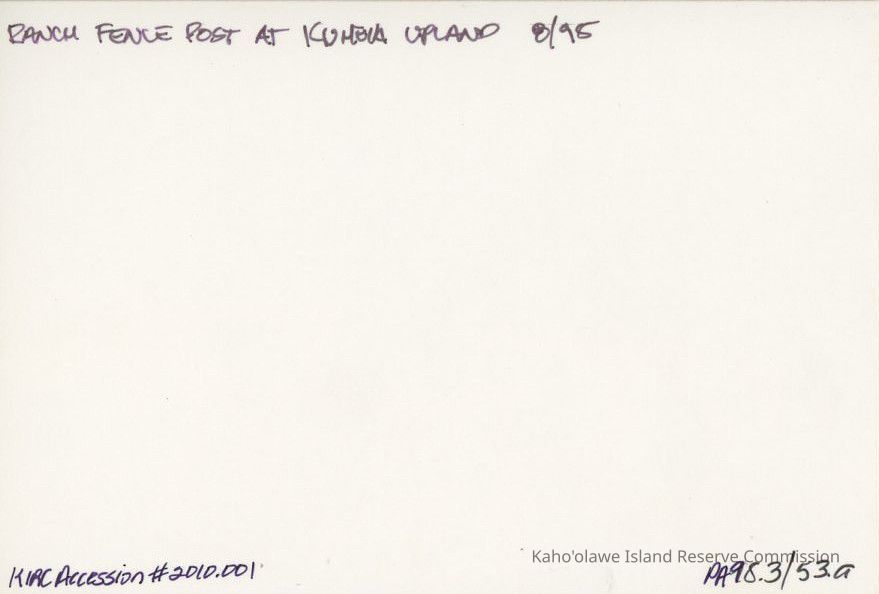 RANCH FENCE POST AT KUHEIA UPLAND 8/95
Kaho'olawe Island Reserve Commission
KIRC Accession #2010.001
PA98.3/53.a